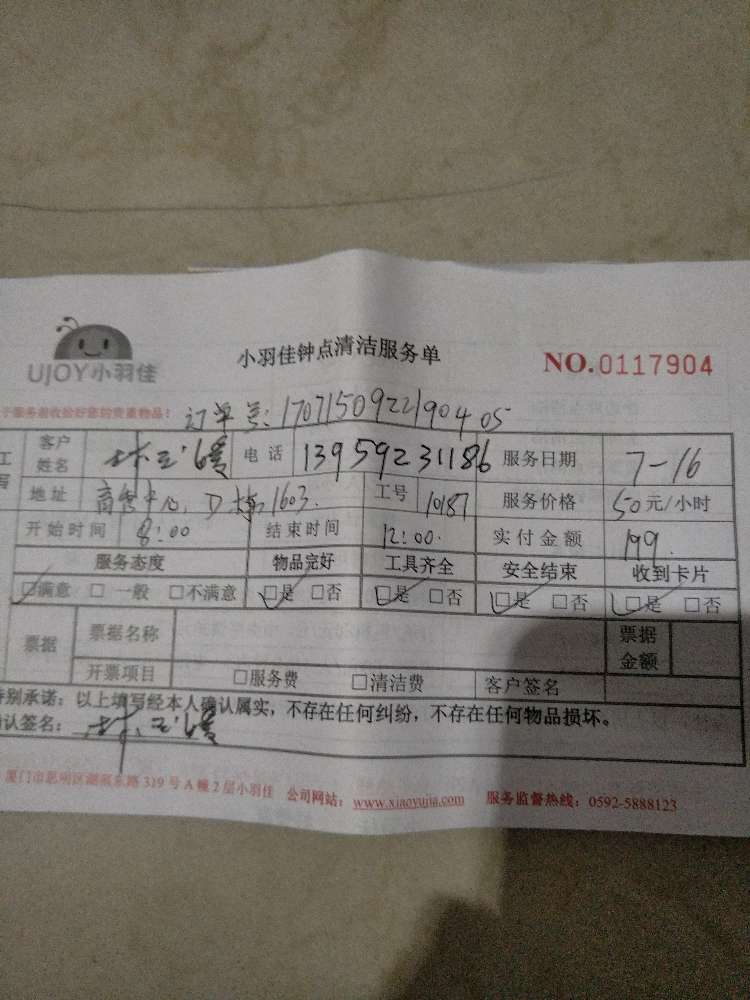 UJOY小羽佳
小羽佳钟点清洁服务单
NO.0117904
于服务前收拾好您的贵重物品！
订单号：17071509221904 05
客户姓名 电话 13959231186 服务日期 7-16
地址 商售中心，D栋1603. 工号 10187 服务价格 50元/小时
开始时间 8:00 结束时间 12:00. 实付金额 199.
服务态度 物品完好 工具齐全 安全结束 收到卡片
□满意 □ 一般 □不满意 □是 □否 □是 □否 □是 □否 □是 □否
票据 票据名称 票据金额
开票项目 □服务费 □清洁费 客户签名
特别承诺：以上填写经本人确认属实，不存在任何纠纷，不存在任何物品损坏。
确认签名：
厦门市思明区湖滨东路319号A幢2层小羽佳 公司网站：www.xiaoyujia.com 服务监督热线：0592-5888123